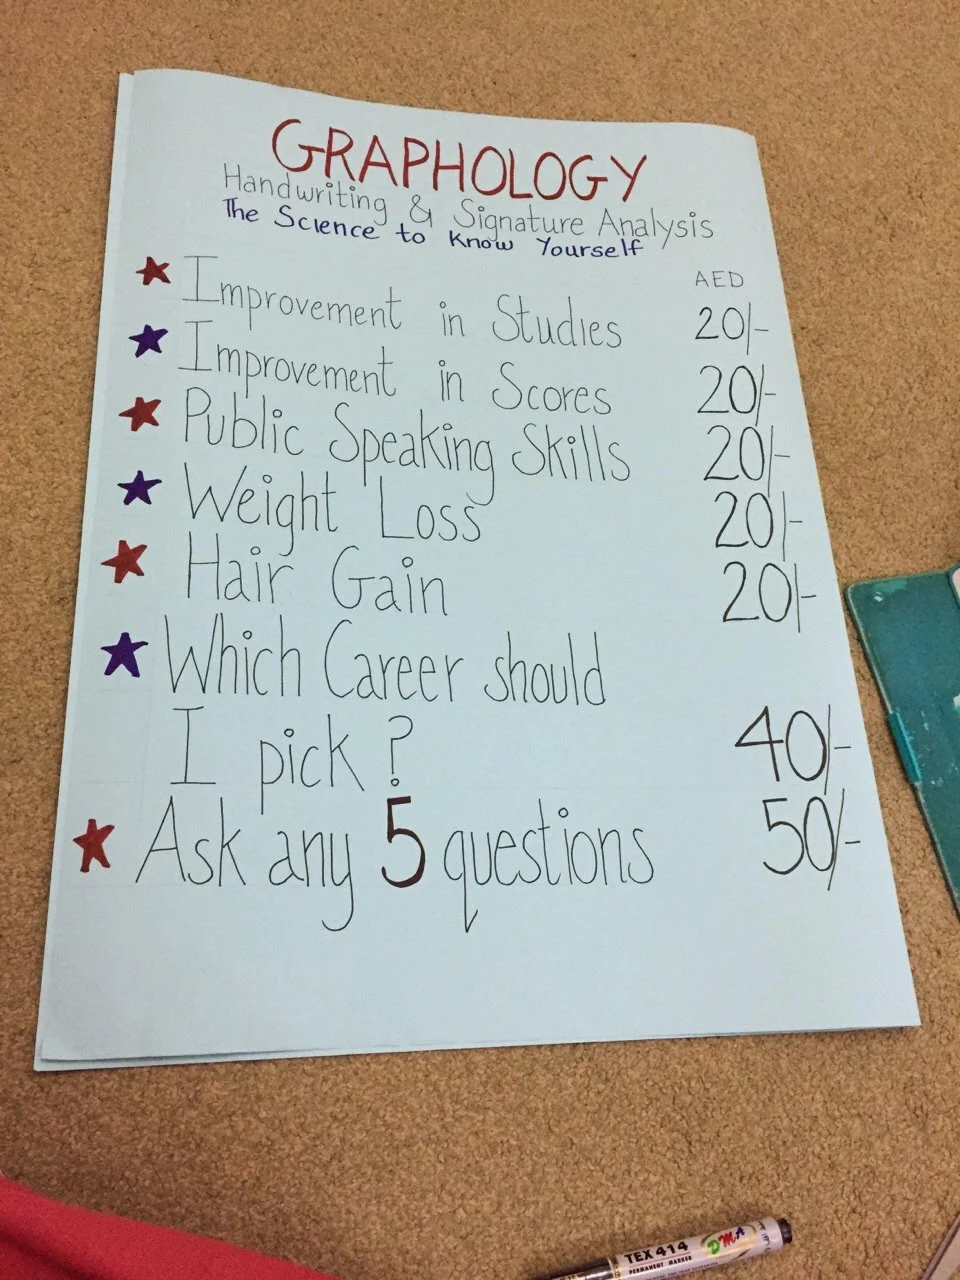 GRAPHOLOGY
Handwriting & Signature Analysis
The Science to Know Yourself
AED
★ Improvement in Studies 20/-
★ Improvement in Scores 20/-
★ Public Speaking Skills 20/-
★ Weight Loss 20/-
★ Hair Gain 20/-
★ Which Career should
I pick? 40/-
★ Ask any 5 questions 50/-
TEX 414 DMA
PERMANENT MARKER